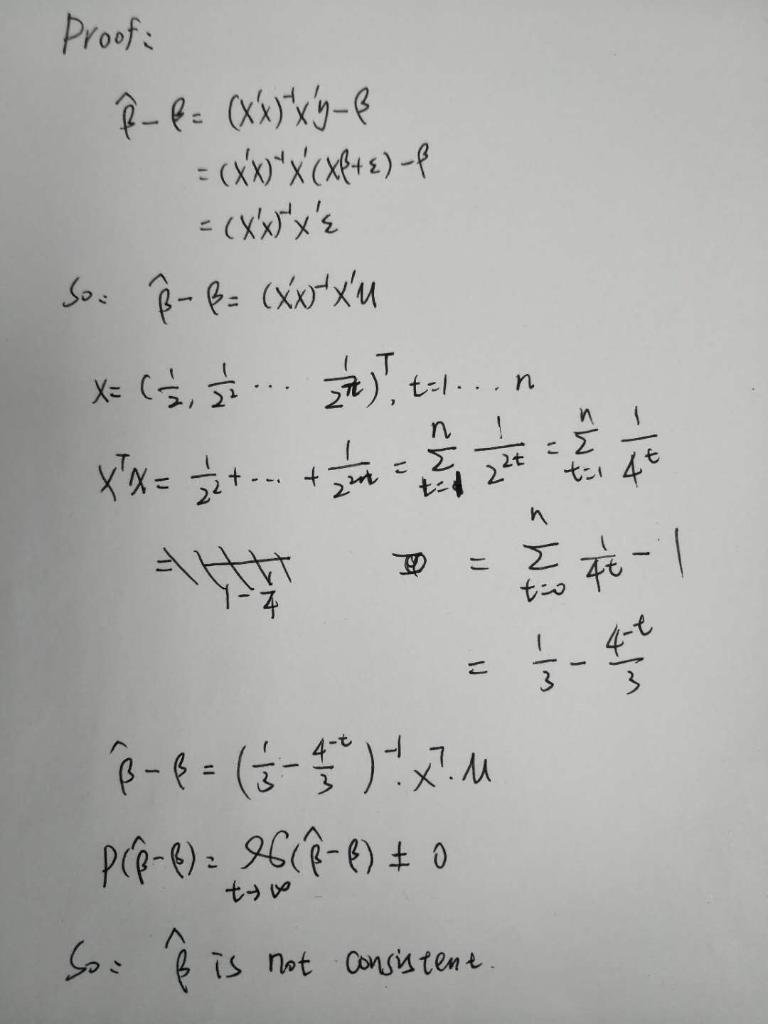 Proof:
β̂ - β = (X'X)⁻¹X'y - β
= (X'X)⁻¹X'(Xβ+ε) - β
= (X'X)⁻¹X'ε
So: β̂ - β = (X'X)⁻¹X'u
X = (1/2, 1/2² ... 1/2ⁿ)ᵀ, t=1 ... n
XᵀX = 1/2² + ... + 1/2²ⁿ = Σₜ₌₁ⁿ 1/2²ᵗ = Σₜ₌₁ⁿ 1/4ᵗ
= Σₜ₌₀ⁿ 1/4ᵗ - 1
= 1/3 - 4⁻ᵗ/3
β̂ - β = (1/3 - 4⁻ᵗ/3)⁻¹·Xᵀ·u
P(β̂-β) = (β̂-β) ≠ 0
t→∞
So: β̂ is not consistent.